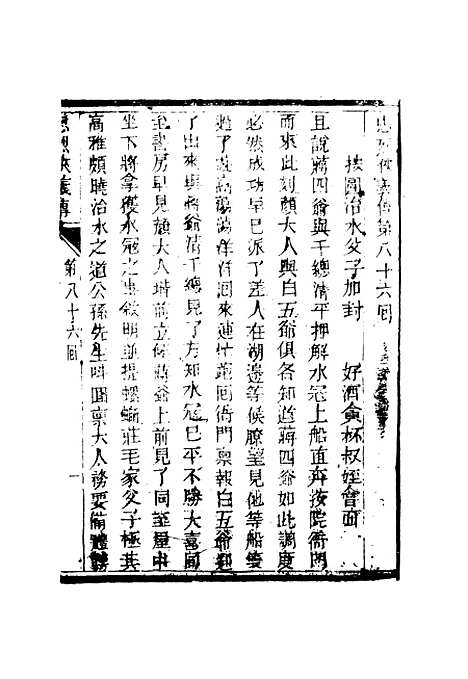 忠烈俠義傳第八十六回
按圖治水父子加封　好酒貪杯叔姪會面
且說蔣四爺與千總清平押解水冦上船直奔按院衙門
而來此刻顏大人與白五爺俱各知道蔣四爺如此調度
必然成功早已派了差人在湖邊等候瞭望見他等船隻
過了浩蕩蕩洋洋回來連忙跑回衙門禀報白五爺迎
了出來與蔣爺清千總見了方知水冦已平不勝大喜同
至書房早見顏大人堦前立候蔣爺上前見了同至屋中
坐下將拿獲水冦之事敘明並提螺螄莊毛家父子極其
高雅頗曉治水之道公孫先生叫回禀大人務要備禮
忠烈俠義傳　第八十六回　一